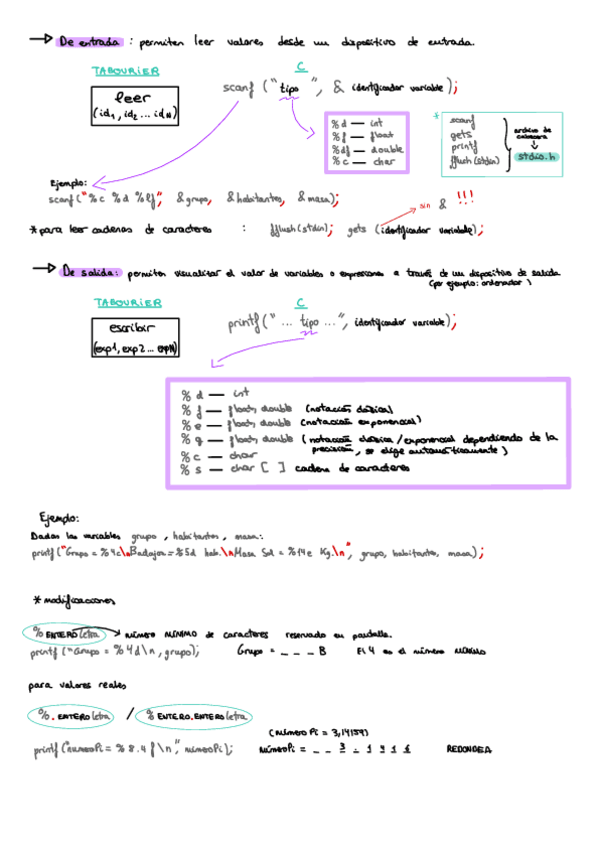 → De entrada : permiten leer valores desde un dispositivo de entrada.
TABOURIER
C
leer
(id1, id2 ... idN)
scanf ("tipo", & identificador variable);
%d — int
%f — float
%df — double
%c — char
*
scanf
gets
printf
fflush(stdin)
archivo de cabecera
stdio.h
Ejemplo:
scanf("%c %d %lf", &grupo, &habitantes, &masa);
sin & !!!
*para leer cadenas de caracteres : fflush(stdin); gets (identificador variable);
→ De salida: permiten visualizar el valor de variables o expresiones a través de un dispositivo de salida
(por ejemplo: ordenador)
TABOURIER
C
escribir
(exp1, exp2 ... expN)
printf(" ... tipo ...", identificador variable);
%d — int
%f — float, double (notación clásica)
%e — float, double (notación exponencial)
%g — float, double (notación clásica/exponencial dependiendo de la
precisión, se elige automáticamente)
%c — char
%s — char [ ] cadena de caracteres
Ejemplo:
Dadas las variables grupo, habitantes, masa:
printf("Grupo = %4c\nBadajoz = %5d hab.\nMasa Sol = %14e Kg.\n", grupo, habitantes, masa);
*modificaciones
% ENTERO letra → número MÍNIMO de caracteres reservado en pantalla.
printf ("Grupo = %4d\n, grupo); Grupo = _ _ _ B El 4 es el número MÍNIMO
para valores reales
%. ENTERO letra / % ENTERO.ENTERO letra
(número Pi = 3,14159)
printf("numeroPi = %8.4f\n", númeroPi); númeroPi = _ _ 3 . 1 4 1 6 REDONDEA